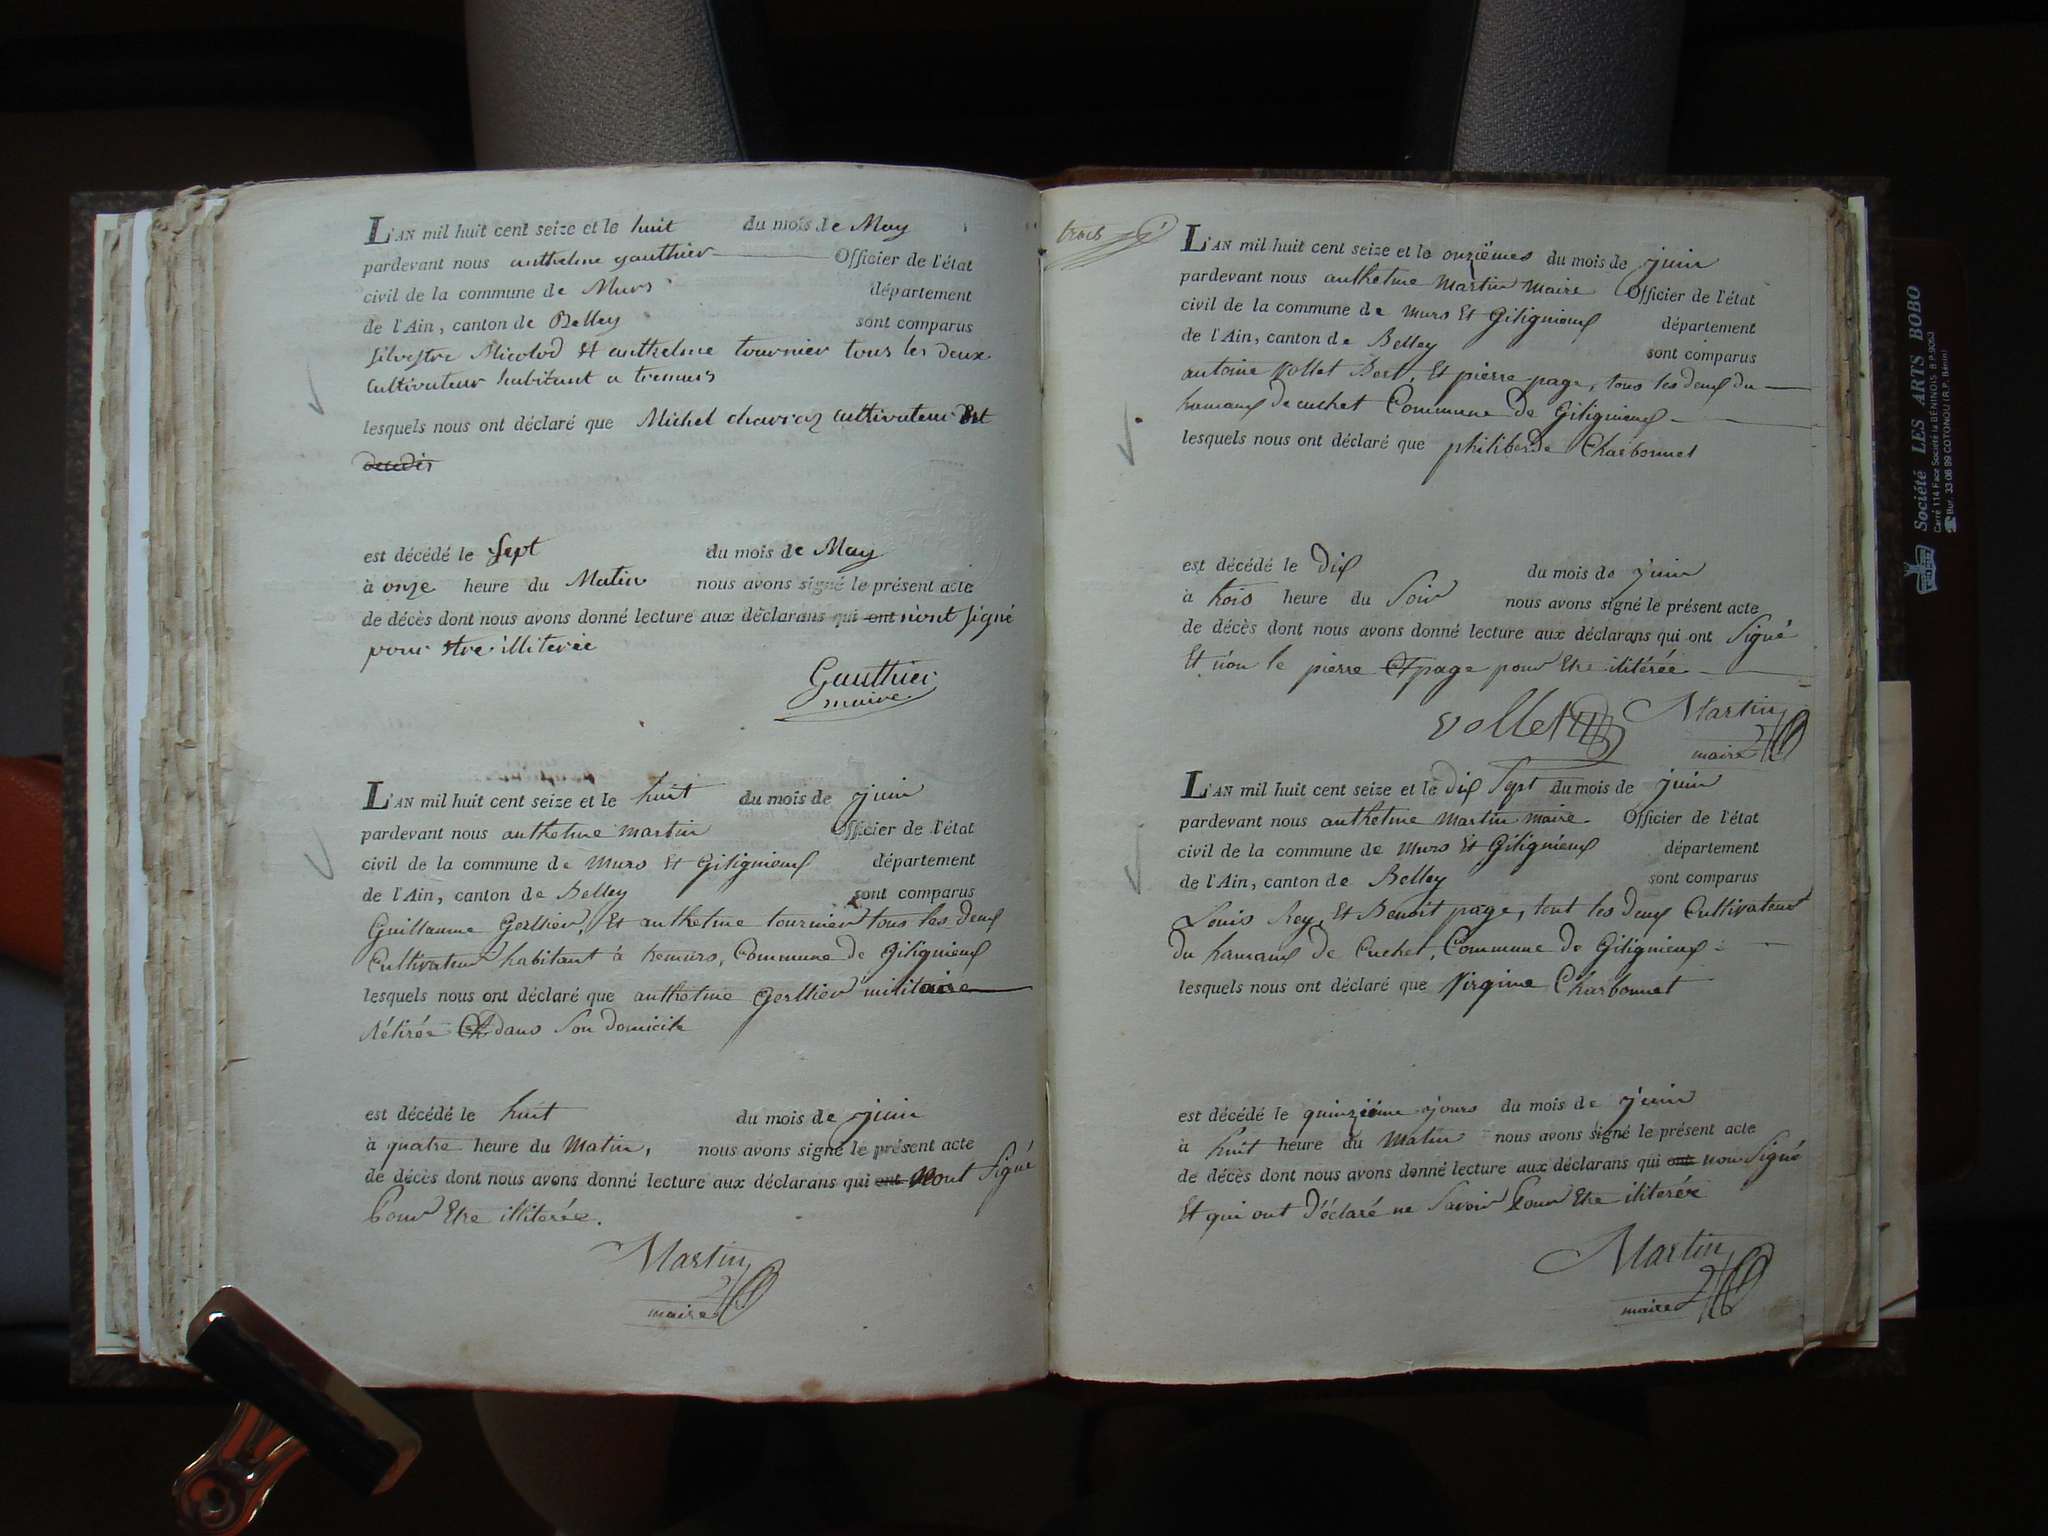 L'AN mil huit cent seize et le huit du mois de May
pardevant nous anthelme gauthier Officier de l'état
civil de la commune de Murs département
de l'Ain, canton de Belley sont comparus
silvestre Micolod et anthelme tournier tous les deux
Cultivateur habitant a tremurs
lesquels nous ont déclaré que Michel cultivateur Est
decedis
est décédé le sept du mois de May
à onze heure du Matin nous avons signé le présent acte
de décès dont nous avons donné lecture aux déclarans qui ont n'ont signé
pour Etre illiterée
Gauthier
maire
L'AN mil huit cent seize et le huit du mois de juin
pardevant nous anthelme martin Officier de l'état
civil de la commune de Murs Et Gélignieux département
de l'Ain, canton de Belley sont comparus
Guillaume Gerllier, Et anthelme tournier tous les deux
Cultivateur habitant à tremurs, Commune de Gélignieux
lesquels nous ont déclaré que anthelme Gerllier militaire
Rétirée dans Son domicile
est décédé le huit du mois de juin
à quatre heure du Matin, nous avons signé le présent acte
de décès dont nous avons donné lecture aux déclarans qui ont Nont Signé
Pour Etre illiterée.
Martin
maire
trois
L'AN mil huit cent seize et le onzièmes du mois de juin
pardevant nous anthelme Martin Maire Officier de l'état
civil de la commune de Murs Et Gélignieux département
de l'Ain, canton de Belley sont comparus
antoine Vollet Bert, Et pierre page, tous les deux du
hamaux de cuchet Commune de Gélignieux
lesquels nous ont déclaré que philiberde Charbonnet
est décédé le Dix du mois de juin
à trois heure du Soir nous avons signé le présent acte
de décès dont nous avons donné lecture aux déclarans qui ont Signé
Et non le pierre page pour Etre ilitérée
vollet Martin
maire
L'AN mil huit cent seize et le dix Sept du mois de juin
pardevant nous anthelme Martin Maire Officier de l'état
civil de la commune de Murs Et Gélignieux département
de l'Ain, canton de Belley sont comparus
Louis Rey, Et Benoit page, tout les deux Cultivateur
du hamaux de Cuchet, Commune de Gélignieux
lesquels nous ont déclaré que Virginie Charbonnet
est décédé le quinzième jours du mois de juin
à huit heure du Matin nous avons signé le présent acte
de décès dont nous avons donné lecture aux déclarans qui ont non Signé
Et qui ont Déclaré ne Savoir Pour Etre ilitérée
Martin
maire
Société LES ARTS BOBO
Carré 114 Face Société la BÉNINOIS B.P. 9053
Bur. 33 06 99 COTONOU (R.P. Bénin)